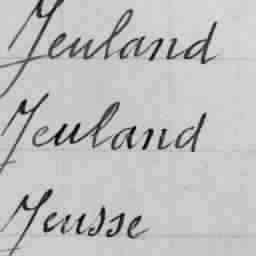 Jeuland
Jeuland
Jeusse